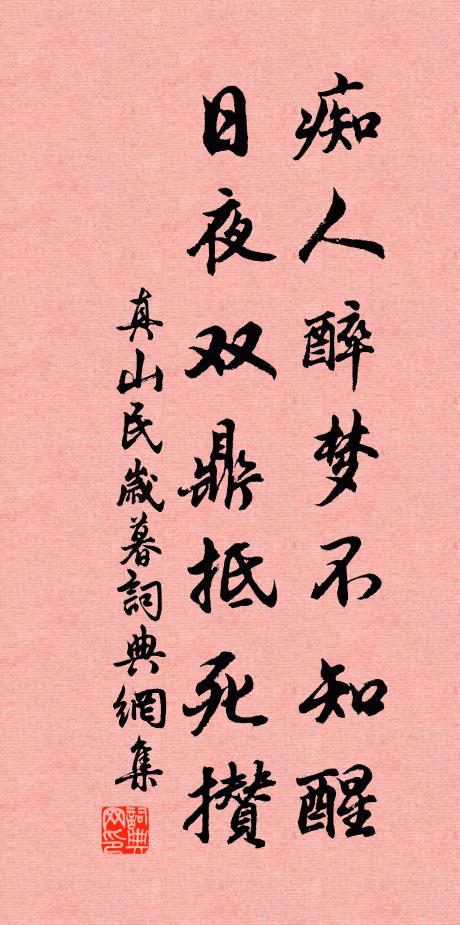 痴人醉梦不知醒
日夜双鼎抵死攒
真山民歲暮詞典網集
詞典网印